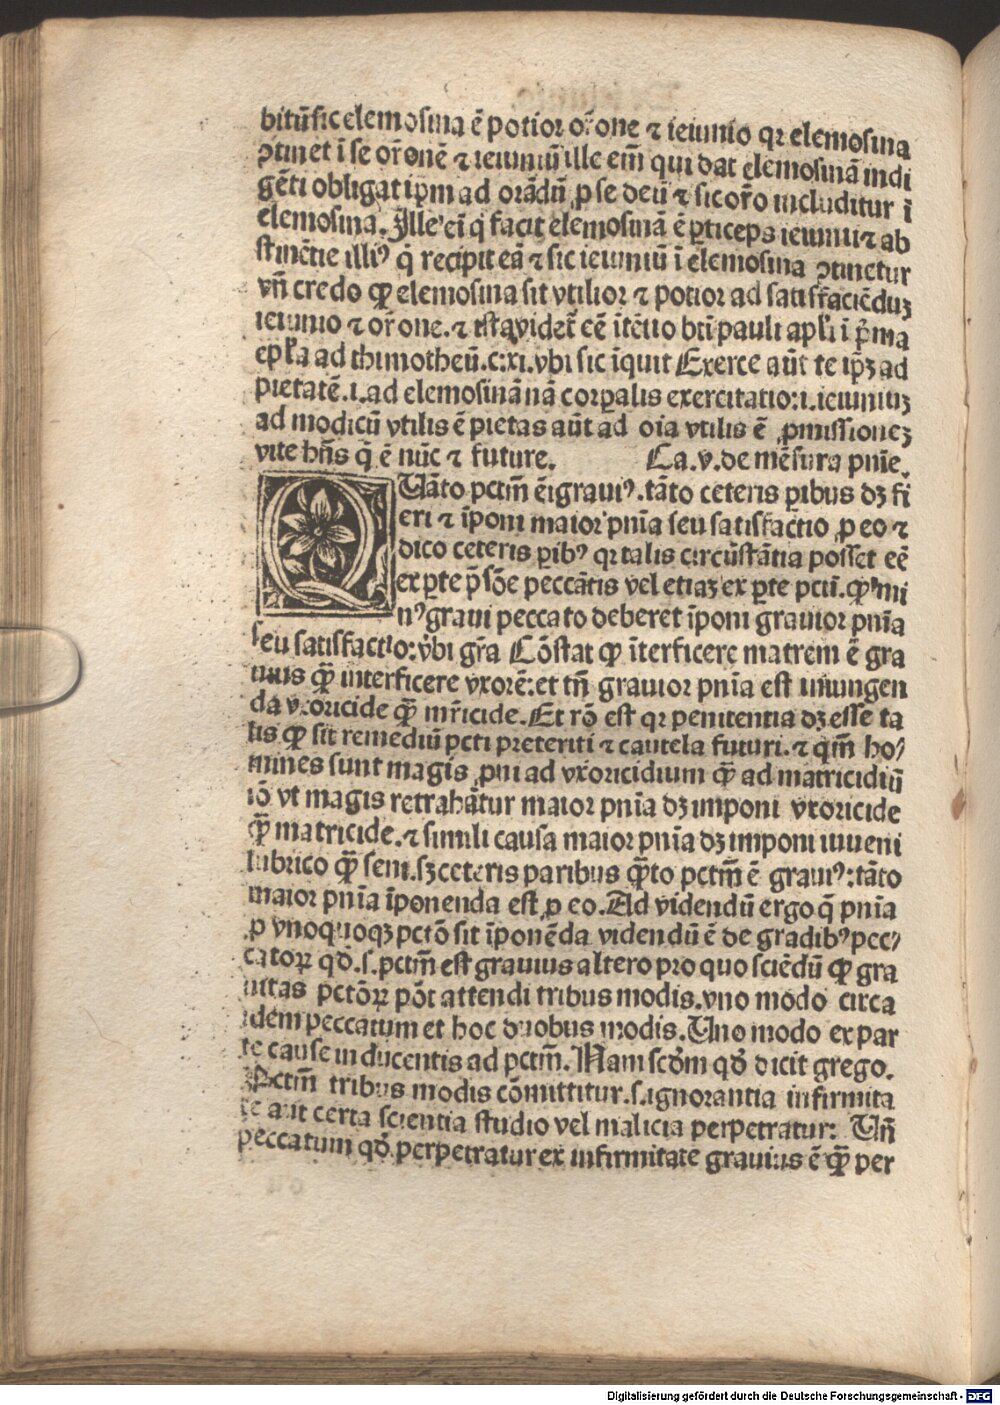 bitū sic elemosina ē potior or̄one ⁊ ieiunio qr elemosina
ꝯtinet ī se or̄onē ⁊ ieiuniū ille eīm qui dat elemosinā indi
gēti obligat ip̄m ad orādū ꝓ se deū ⁊ sic or̄o includitur ī
elemosina. Ille eī q̄ facit elemosinā ē ꝑticeps ieiunii ⁊ ab
stinētie illiꝰ q̄ recipit eā ⁊ sic ieiuniū ī elemosina ꝯtinetur
vn̄ credo ꝙ elemosina sit vtilior ⁊ potior ad satisfaciēduꝫ
ieiunio ⁊ or̄one. ⁊ ista videt̄ eē ītētio bt̄i pauli apl̄i ī p̄ma
epl̄a ad thimotheū.c.xi.vbi sic īquit Exerce aūt te ip̄ꝫ ad
pietatē.i.ad elemosinā nā corꝑalis exercitatio:i.ieiuniuꝫ
ad modicū vtilis ē pietas aūt ad oīa vtilis ē ꝓmissioneꝫ
vite hn̄s q̄ ē nūc ⁊ future. Ca.v.de mēsura pn̄ie.
QUāto pctm̄ ē grauiꝰ.tāto ceteris ꝑibus dꝫ fi
eri ⁊ īponi maior pn̄ia seu satisfactio ꝓ eo ⁊
dico ceteris ꝑibꝰ qr talis circūstātia posset eē
ex ꝑte ꝑsōe peccātis vel etiaꝫ ex ꝑte pcti. ꝙ mi
nꝰ graui peccato deberet īponi grauior pn̄ia
seu satisfactio: v̄bi gr̄a Cōstat ꝙ īterficere matrem ē gra
uius ꝙ̄ interficere vxorē: et tn̄ grauior pn̄ia est iniungen
da vxoricide ꝙ̄ mr̄icide. Et rō est qr penitentia dꝫ esse ta
lis ꝙ sit remediū pcti preteriti ⁊ cautela futuri. ⁊ qm̄ ho/
mines sunt magis ꝓni ad vxoricidium ꝙ̄ ad matricidiū
iō vt magis retrahātur maior pn̄ia dꝫ imponi vxoricide
ꝙ̄ matricide. ⁊ simili causa maior pn̄ia dꝫ imponi iuueni
lubrico ꝙ̄ seni. sꝫ ceteris paribus ꝙ̄to pctm̄ ē grauiꝰ: tāto
maior pn̄ia īponenda est ꝓ eo. Ad videndū ergo q̄ pn̄ia
ꝓ vnoquoqꝫ pctō sit īponēda videndū ē de gradibꝰ pec/
catorꝝ qd̄.s.pctm̄ est grauius altero pro quo sciēdū ꝙ gra
uitas pctōꝝ pōt attendi tribus modis. vno modo circa
idem peccatum et hoc duobus modis. Uno modo ex par
te cause inducentis ad pctm̄. Nam scd̄m qd̄ dicit grego.
Pctm̄ tribus modis cōmittitur. s. ignorantia infirmita
te aut certa scientia studio vel malicia perpetratur: Un̄
peccatum qd̄ perpetratur ex infirmitate grauius ē ꝙ̄ per
Digitalisierung gefördert durch die Deutsche Forschungsgemeinschaft - DFG